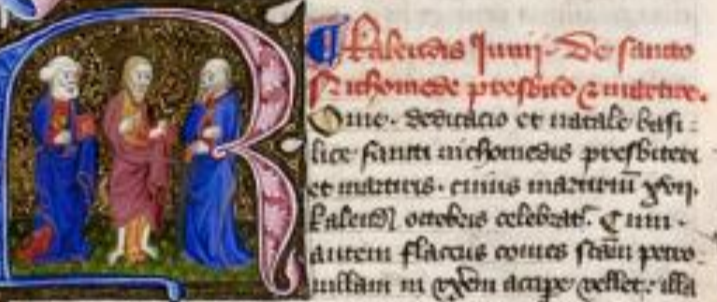 Kalendis Junij. De sancto
Nichomede presbitero & martire.
Rome. Dedicacio et natale basi-
lice sancti nichomedis presbiteri
et martiris. cuius martiriū xvij.
kalend octobris celebrat. Cum
autem flaccus comes scām petro-
nillam in vxorē accipe vellet: illa